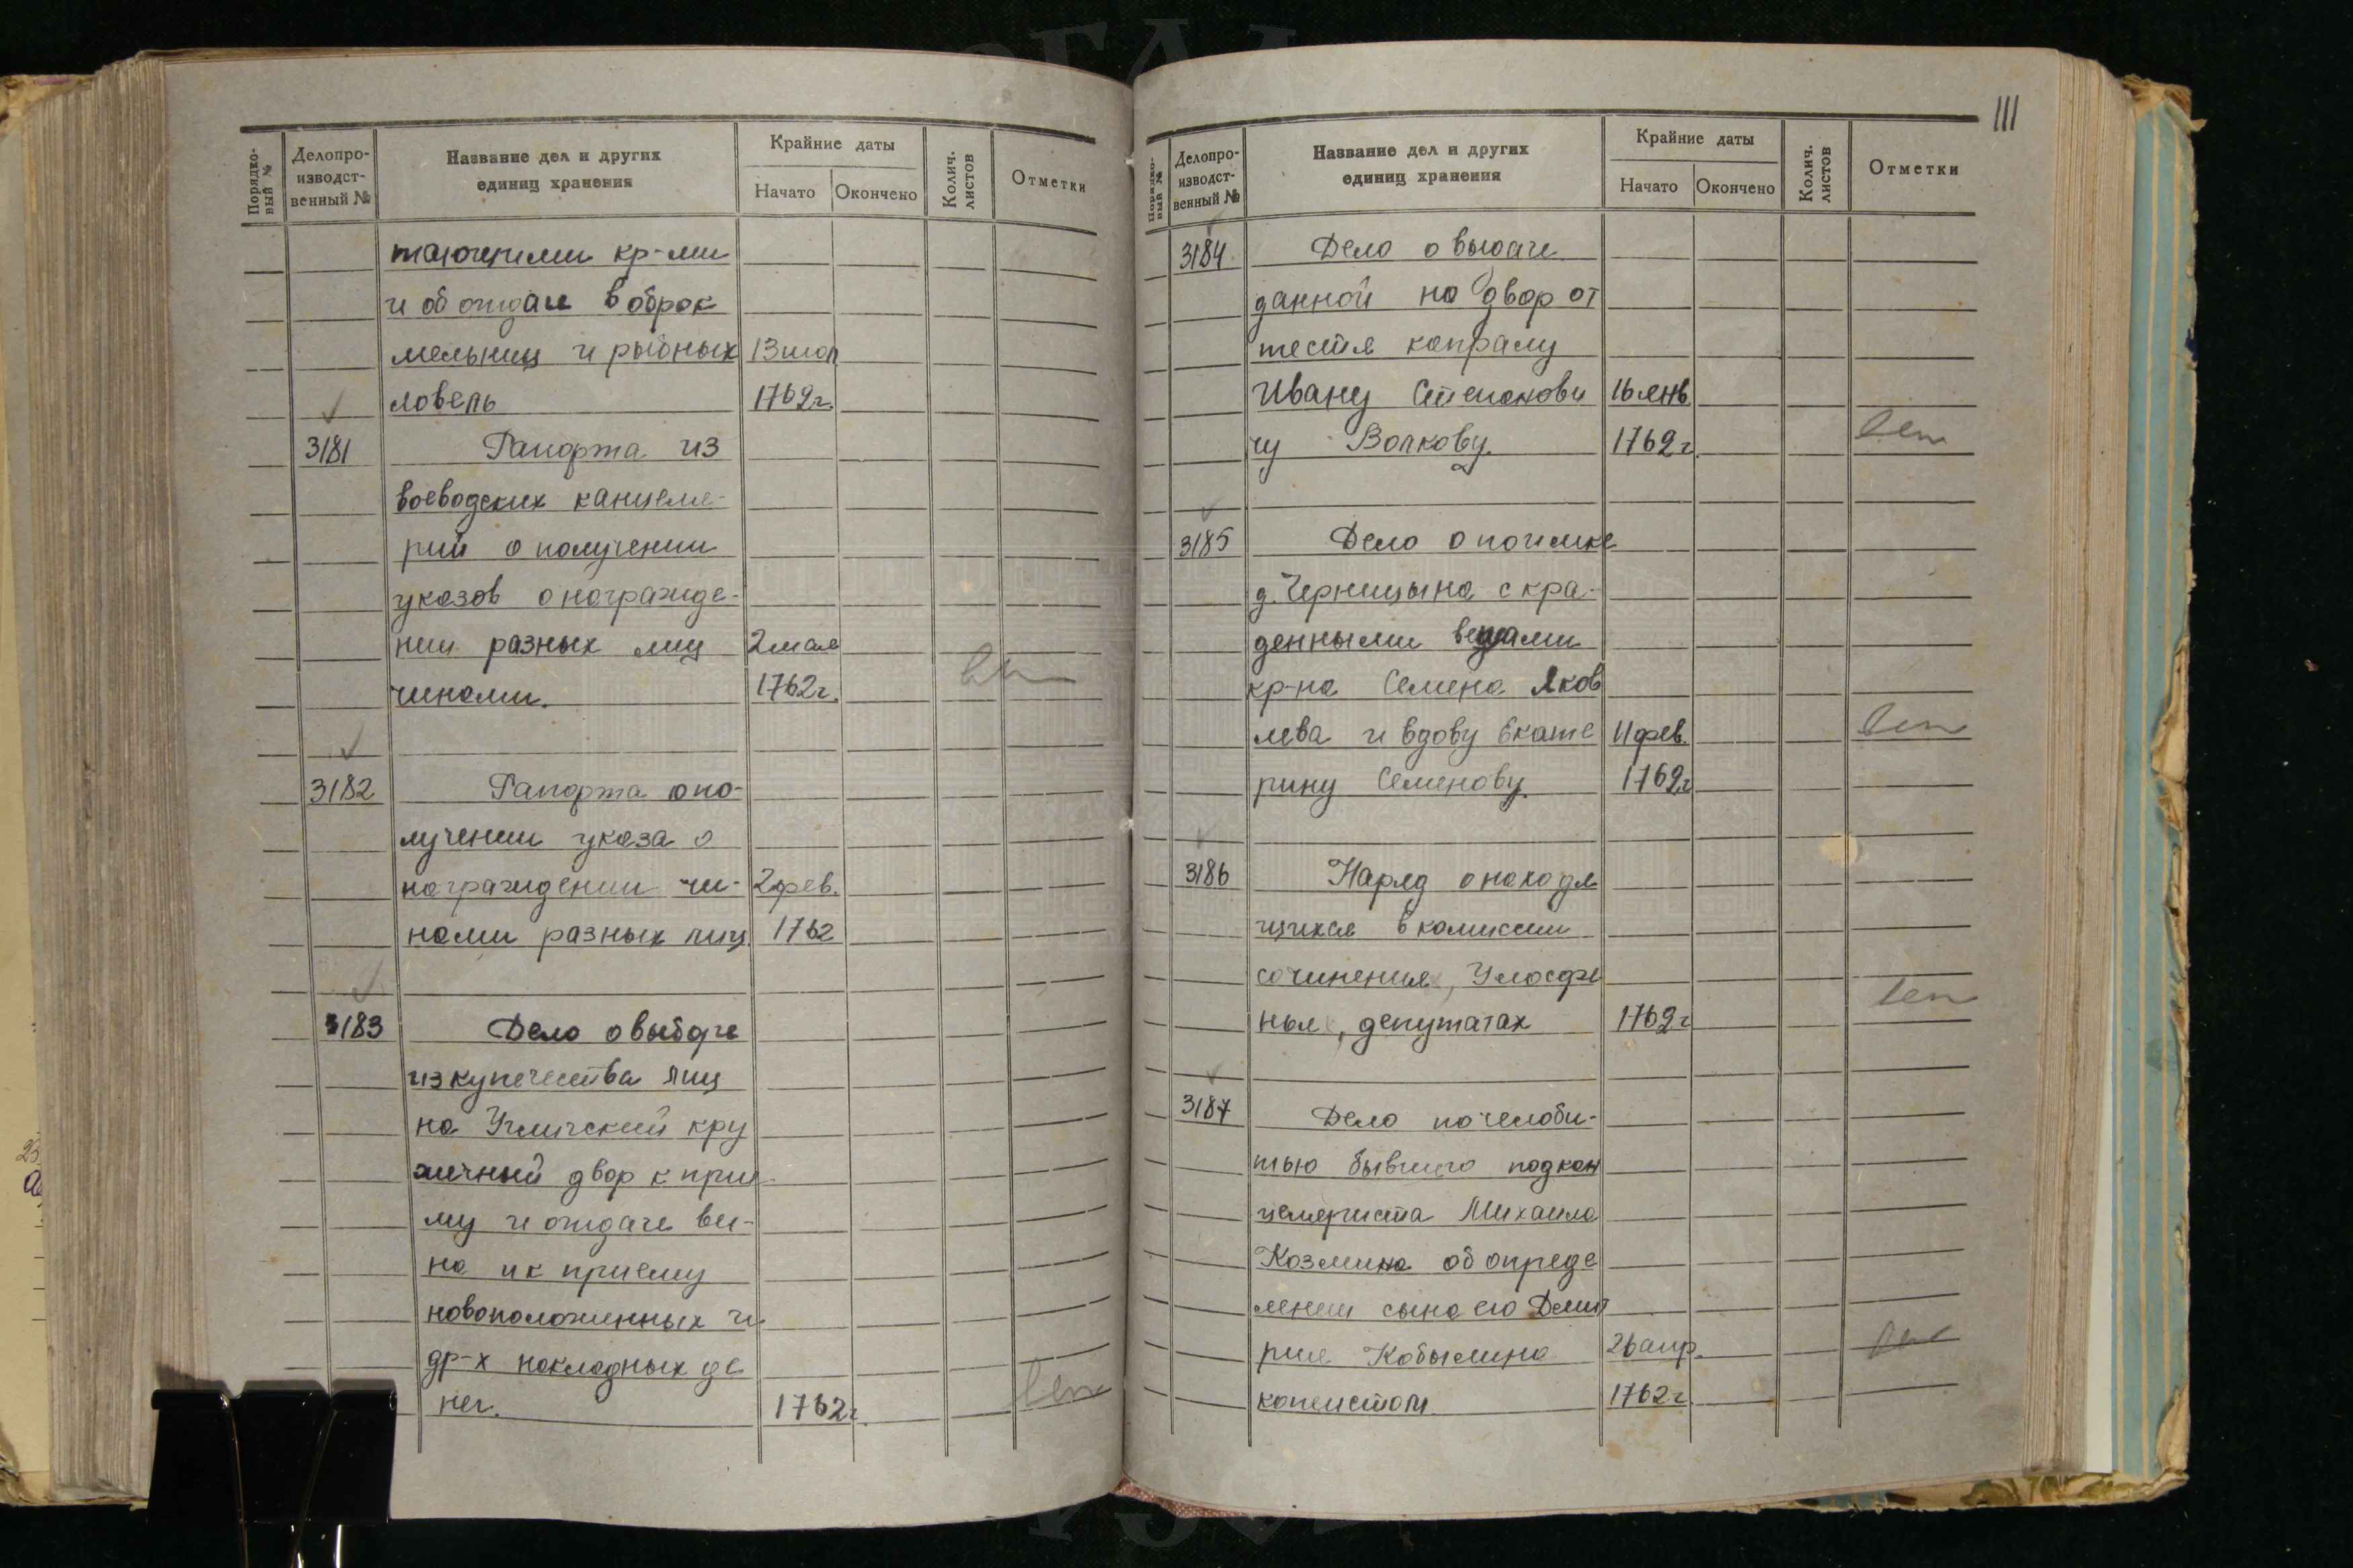 Порядко-
вый №
Делопро-
изводст-
венный №
Название дел и других
единиц хранения
Крайние даты
Начато
Окончено
Колич.
листов
Отметки
тающими кр-ми
и об отдаче в оброк
мельниц и рыбных 13 июл
ловель 1762г.
3181 Рапорта из
воеводских канцеля-
рий о получении
указов о награжде-
нии разных лиц 2 мая
чинами. 1762г.
3182 Рапорта о по-
лучении указа о
награждении чи- 2 фев.
нами разных лиц 1762
3183 Дело о выборе
из купечества лиц
на Угличский кру
жечный двор к прие-
му и отдаче ви-
на и к приему
новоположенных и
др-х накладных де
нег. 1762г.
111
Порядко-
вый №
Делопро-
изводст-
венный №
Название дел и других
единиц хранения
Крайние даты
Начато
Окончено
Колич.
листов
Отметки
3184 Дело о выдаче
данной на двор от
тестя капралу
Ивану Степанови 16 янв
чу Волкову. 1762г
3185 Дело о поимке
д. Черницына с кра-
денными вещами
кр-на Семена Яков
лева и вдову Екате 11 фев.
рину Семенову. 1762г
3186 Наряд о находя
щихся в комиссии
сочинения, Уложе
ния, депутатах 1762г
3187 Дело по челоби-
тью бывшего подкан
целяриста Михаила
Козмина об опреде
лении сына его Дмит
рия Кобылина 26 апр.
копеистом 1762г